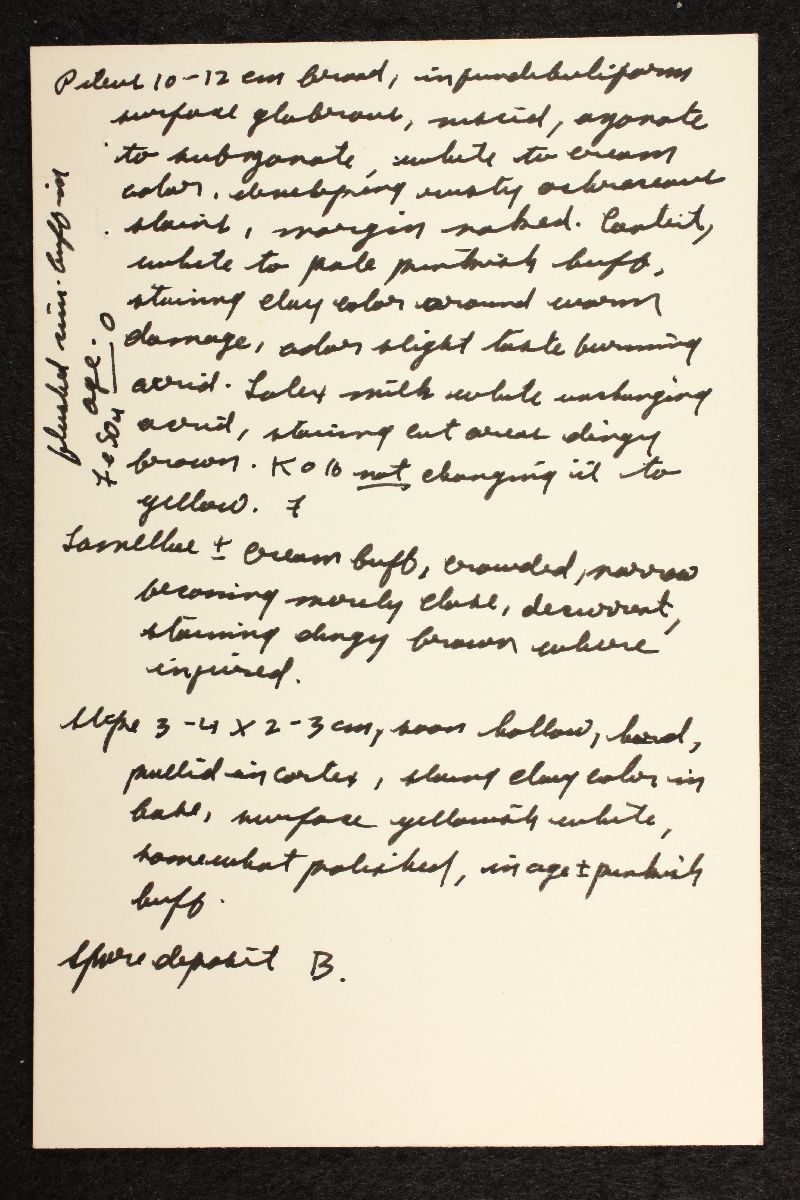 Pileus 10-12 cm broad, infundibuliform
surface glabrous, viscid, azonate
to subzonate, white to cream
color, developing rusty ochraceous
stains, margin naked. Context,
white to pale pinkish buff,
staining clay color around worm
damage, odor slight taste burning
acrid. Latex milk white unchanging
acrid, staining cut areas dingy
brown. KOH not changing it to
yellow.
Lamellae ± cream buff, crowded, narrow
becoming merely close, decurrent,
staining dingy brown where
injured.
Stipe 3-4 X 2-3 cm, soon hollow, hard,
pallid in cortex, clay color in
base, surface yellowish white,
somewhat polished, in age ± pinkish
buff.
Spore deposit B.
flushed buff in
age.
FeSO4 O